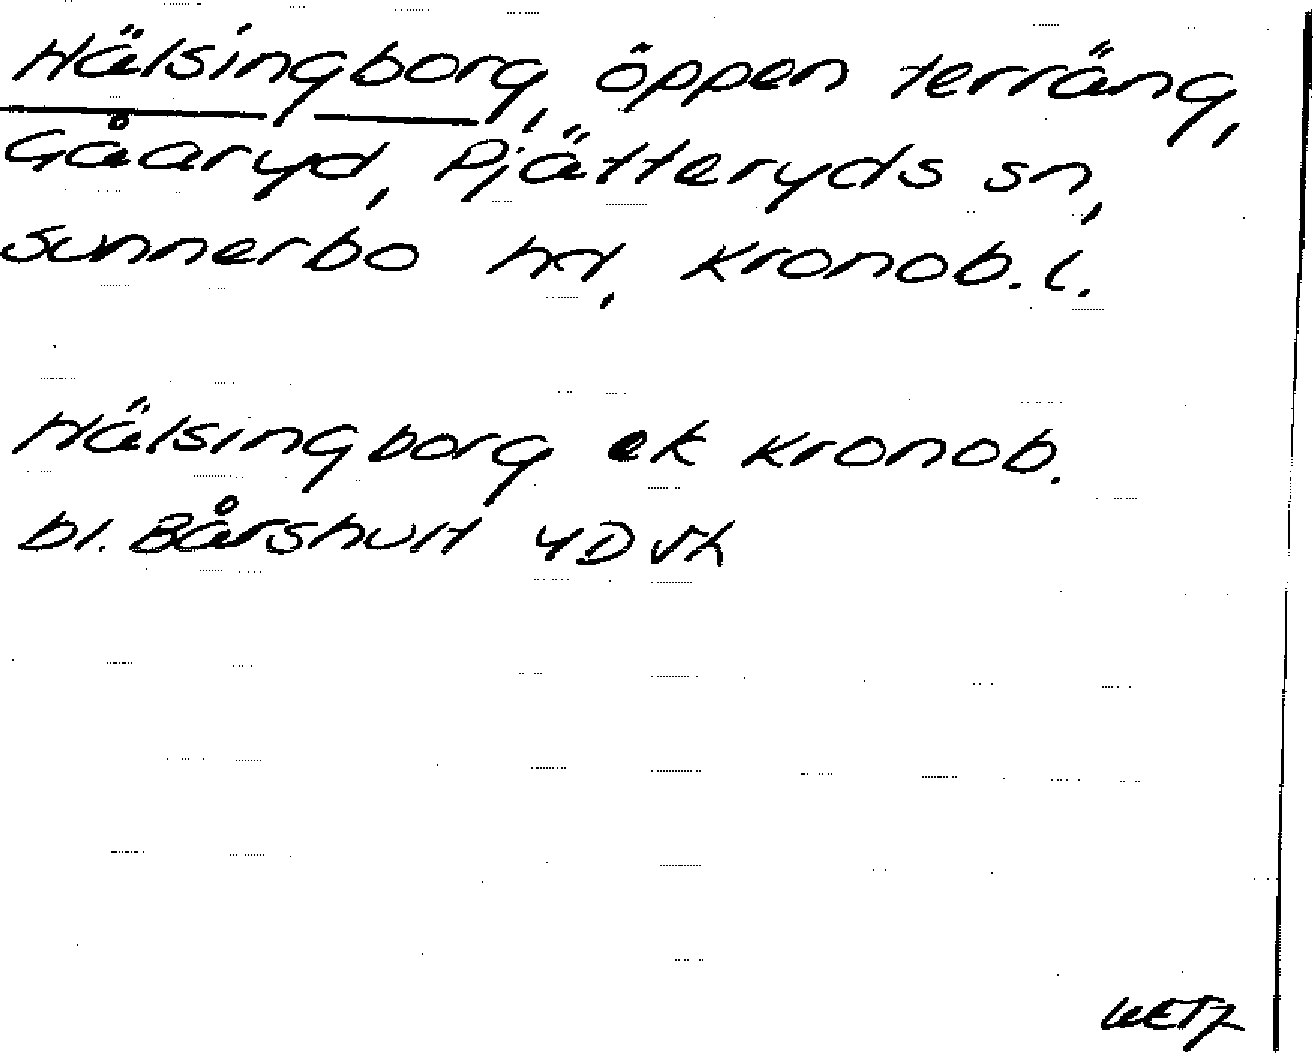 Hälsingborg, öppen terräng,
Gåaryd, Pjätteryds sn,
Sunnerbo hd, Kronob. l.
Hälsingborg ek Kronob.
bl. Bårshult 4D